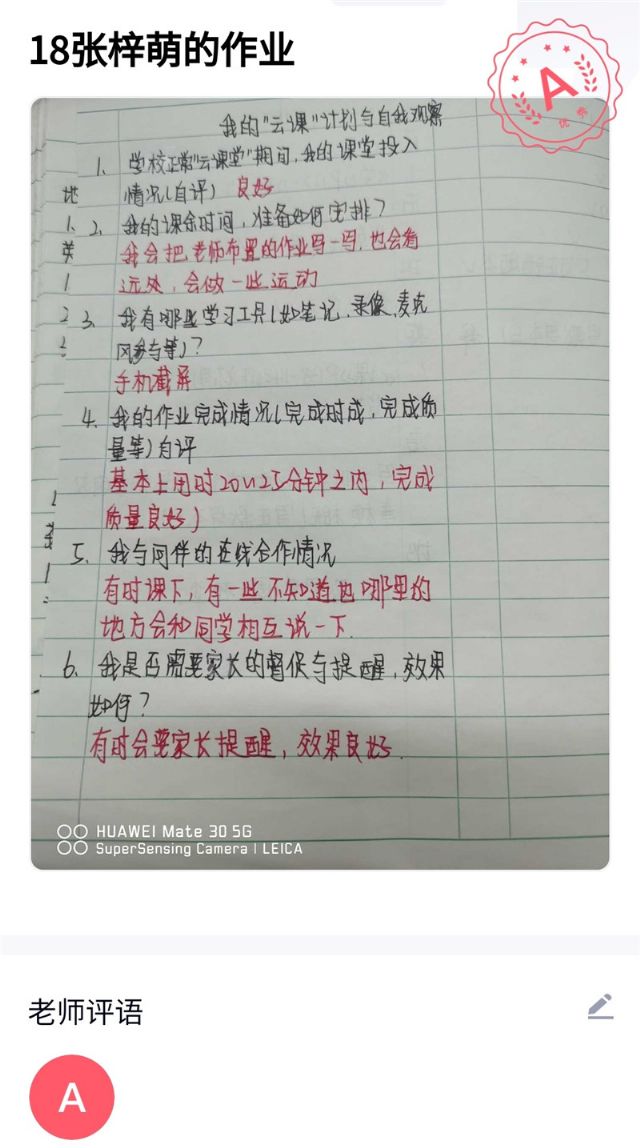 18张梓萌的作业
A
优秀
我的"云课"计划与自我观察
1、学校正常"云课堂"期间,我的课堂投入
情况(自评) 良好
2、我的课余时间,准备如何安排?
我会把老师布置的作业写一写,也会看
远处,会做一些运动
3、我有哪些学习工具(如笔记、录像、麦克
风参与等)?
手机截屏
4、我的作业完成情况(完成时成,完成质
量等)自评
基本上用时20~25分钟之内,完成
质量良好)
5、我与同伴的在线合作情况
有时课下,有一些不知道也哪里的
地方会和同学相互说一下.
6、我是否需要家长的督促与提醒,效果
如何?
有时会要家长提醒,效果良好.
HUAWEI Mate 30 5G
SuperSensing Camera | LEICA
老师评语
A